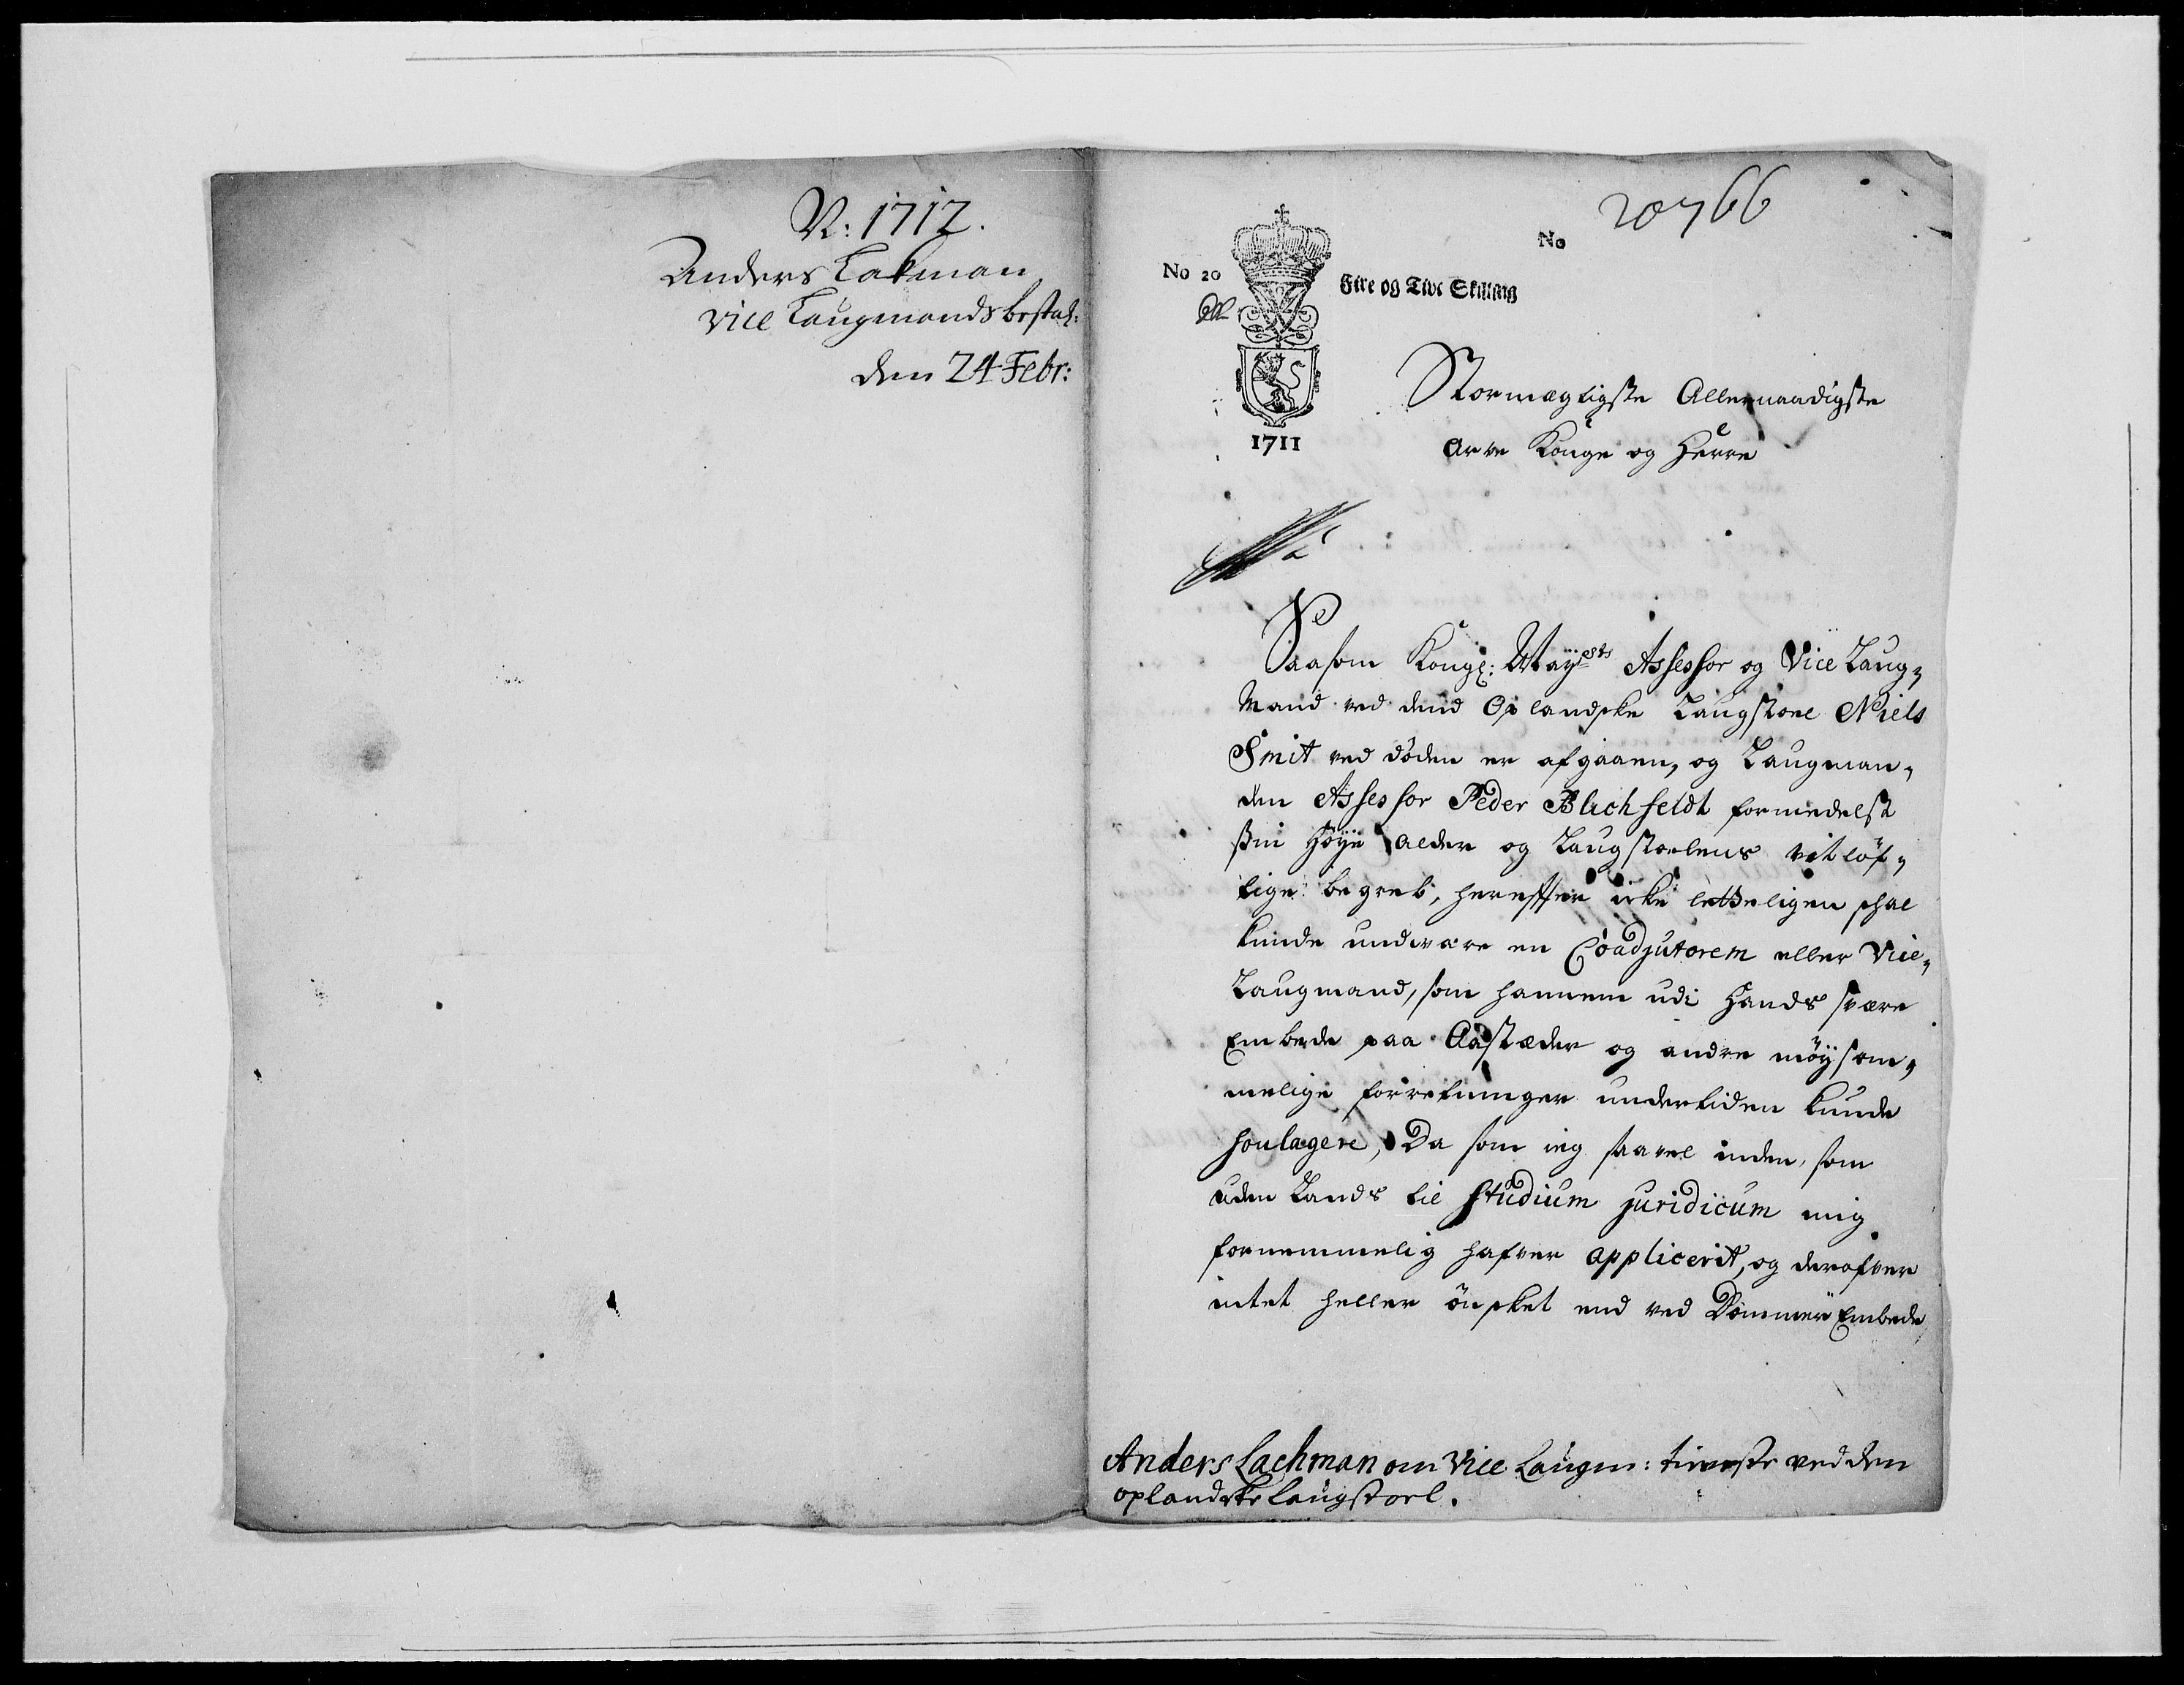 N: 1712.
Anders Lakman
vice Laugmands bestal:
den 24 Febr:
No 20
Fire og Tive Skilling
No 20766
1711
Stormægtigste Allernaadigste
Arve Konge og Herre
Saasom Kongl: Mayests Assessor og Vice Laug„
Mand ved dend Oplandske Laugstoel Niels
Smit ved döden er afgaaen, og Laugman„
den Assessor Peder Blichfeldt formedelst
sin Höye alder og Laugstoelens vitlöf„
tige begreb, hereffter icke letteligen skal
kunde undvære en Coadjutorem eller Vice„
Laugmand, som hannem udi Hands svære
Embede paa Aastæder og andre möysom„
melige forretninger undertiden kunde
soulagere, Da som ieg saavel inden, som
uden Lands til Studium juridicum mig
fornemmelig hafver applicerit, og derofver
intet heller önsket end ved Dommer Embede
Anders Lachman om Vice Laugm: tieneste ved den
oplandske laugstoel.